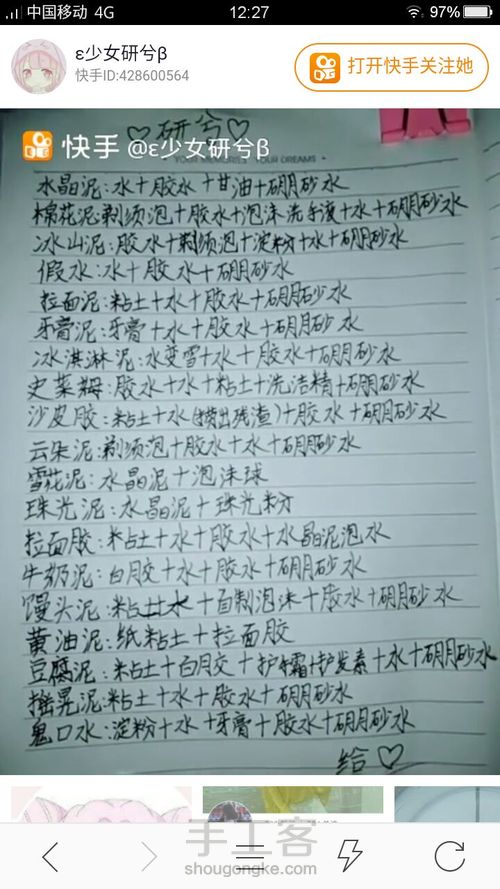 中国移动 4G 12:27 97%
ε少女研兮β
快手ID:428600564
打开快手关注她
♡研兮♡
快手 @ε少女研兮β
YOUR MEMORIES YOUR DREAMS
水晶泥:水+胶水+甘油+硼砂水
棉花泥:剃须泡+胶水+泡沫洗手液+水+硼砂水
冰山泥:胶水+剃须泡+淀粉+水+硼砂水
假水:水+胶水+硼砂水
拉面泥:粘土+水+胶水+硼砂水
牙膏泥:牙膏+水+胶水+硼砂水
冰淇淋泥:水变雪+水+胶水+硼砂水
史莱姆:胶水+水+粘土+洗洁精+硼砂水
沙皮胶:粘土+水(捞出残渣)+胶水+硼砂水
云朵泥:剃须泡+胶水+水+硼砂水
雪花泥:水晶泥+泡沫球
珠光泥:水晶泥+珠光粉
拉面胶:粘土+水+胶水+水晶泥泡水
牛奶泥:白胶+水+胶水+硼砂水
馒头泥:粘土水+自制泡沫+胶水+硼砂水
黄油泥:纸粘土+拉面胶
豆腐泥:粘土+白胶+护手霜+护发素+水+硼砂水
摇晃泥:粘土+水+胶水+硼砂水
鬼口水:淀粉+水+牙膏+胶水+硼砂水
给♡
手工客
shougongke.com